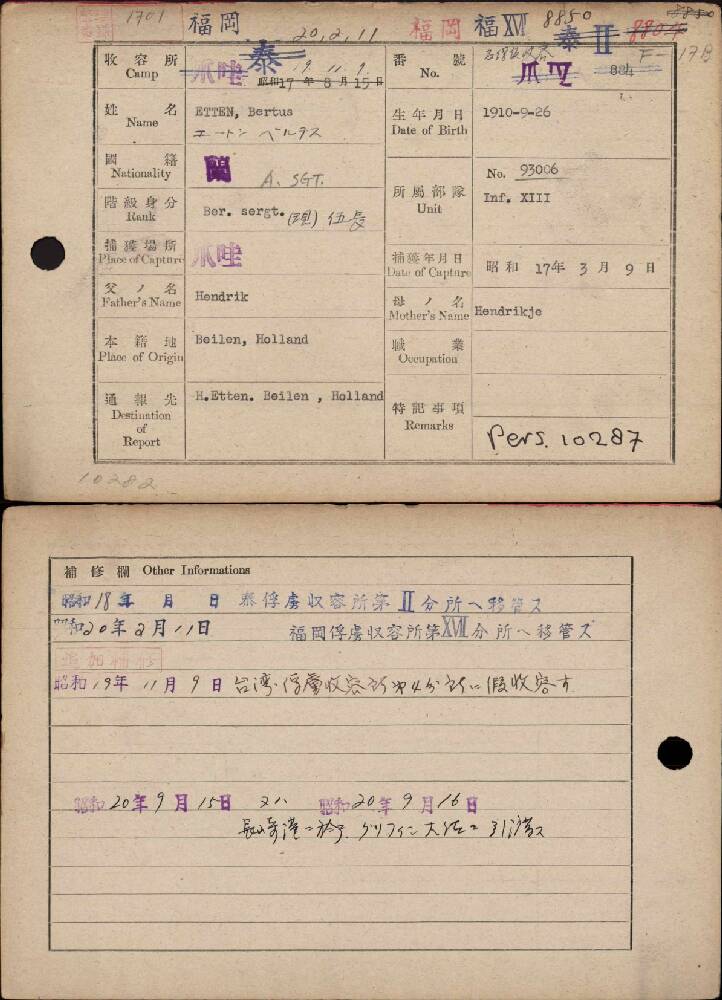 1701 福岡 20,2,11 福岡 福XVI 8850 泰II 8804 8850
收容所 Camp 爪哇 泰 19. 11. 9. 昭和17年8月15日
番號 No. 爪IV 884 F-17B
姓名 Name ETTEN, Bertus
エートン ベルタス
生年月日 Date of Birth 1910-9-26
國籍 Nationality 蘭
A. SGT.
階級身分 Rank Ber. sergt. (現) 伍長
所屬部隊 Unit No. 93006
Inf. XIII
捕獲場所 Place of Capture 爪哇
捕獲年月日 Date of Capture 昭和 17年 3月 9日
父ノ名 Father's Name Hendrik
母ノ名 Mother's Name Hendrikje
本籍地 Place of Origin Beilen, Holland
職業 Occupation
通報先 Destination of Report H.Etten. Beilen , Holland
特記事項 Remarks Pers. 10287
10282
補修欄 Other Informations
昭和18年 月 日 泰俘虜収容所第II分所へ移管ス
昭和20年2月11日 福岡俘虜収容所第XVII分所へ移管ス
追加補修
昭和19年11月9日 台湾俘虜收容所第4分所ニ假收容す
昭和20年9月15日 又ハ 昭和20年9月16日
長崎港ニ於テ グリフィン大佐ニ引渡ス